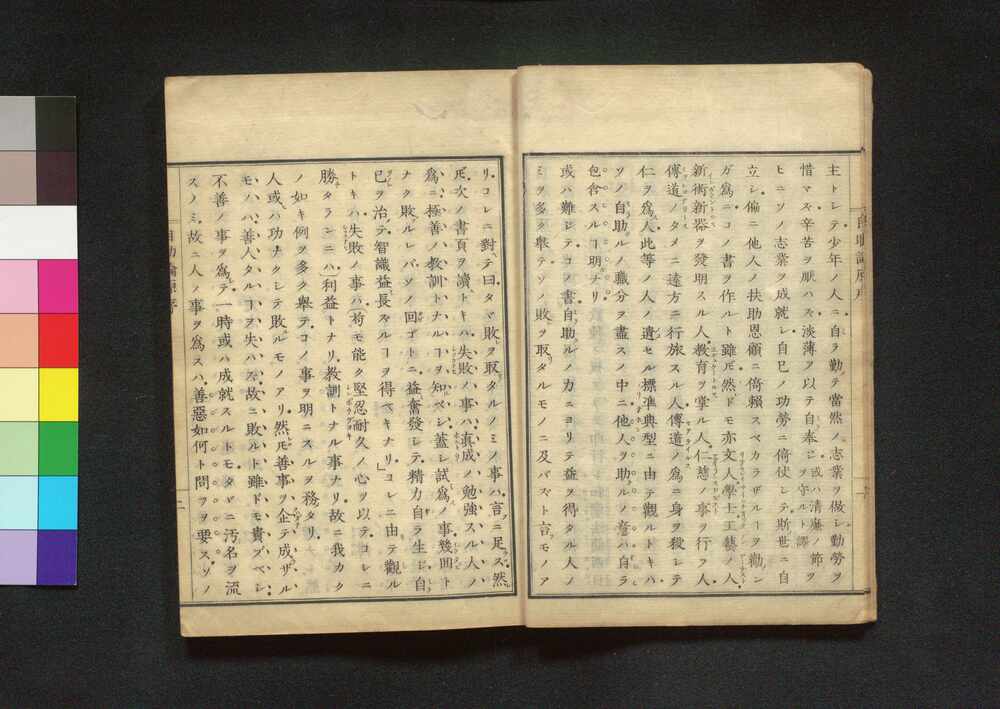 主トシテ少年ノ人ニ自ラ勤テ當然ノ志業ヲ做シ勤勞ヲ
惜マズ辛苦ヲ厭ハズ淡薄ヲ以テ自奉ジヲ守ルト譯或ハ清廉ノ節ヲ
ヒニソノ志業ヲ成就シ自己ノ功勞ニ倚仗シテ斯世ニ自
立シ偏ニ他人ノ扶助恩顧ニ倚賴スベカラザルヿヲ勸ン
ガ爲ニコノ書ヲ作ルト雖𪜈然ドモ亦文人學士工藝ノ人、
新術新器ヲ發明スル人、教育ヲ掌ル人、仁慈ノ事ヲ行フ人
傳道ノタメニ遠方ニ行旅スル人傳道ノ爲ニ身ヲ殺シテ
仁ヲ爲人此等ノ人ノ遺セル標準典型ニ由テ觀ルトキハ
ソノ自助ルノ職分ヲ盡スノ中ニ他人ヲ助ルノ意ハ自ラ
包含スルヿ明ナリ
或ハ難シテコノ書自助ルノ力ニヨリテ益ヲ得タル人ノ
ミヲ多ク擧テソノ敗ヲ取タルモノニ及バズト言モノア
リコレニ對テ曰タマ敗ヲ取タルノミノ事ハ言ニ足ズ然
𪜈次ノ書頁ヲ讀トキハ失敗ノ事ハ眞成ノ勉強スル人ノ
爲ニ極善ノ教訓トナルヿヲ知ベシ蓋シ試爲ノ事幾回ト
ナク敗ルレバソノ回ゴトニ益奮發シテ精力自ラ生シ自
已ヲ治テ智識益長ズルヿヲ得ベキナリ」コレニ由テ觀ル
トキハ失敗ノ事ハ（苟モ能ク堅忍耐久ノ心ヲ以テコレニ
勝タランニハ）利益トナリ教訓トナル事ナリ故ニ我カク
ノ如キ例ヲ多ク擧テコノ事ヲ明ニスルヲ務タリ
人或ハ功ナクシテ敗ルモノアリ然𪜈善事ヲ企テ成ザル
モノハ善人タルヿヲ失ハズ故ニ敗ルト雖ドモ貴ブベシ
不善ノ事ヲ爲テ一時或ハ成就スルトモタヾニ汚名ヲ流
スノミ故ニ人ノ事ヲ爲スハ善惡如何ト問フヲ要スソノ